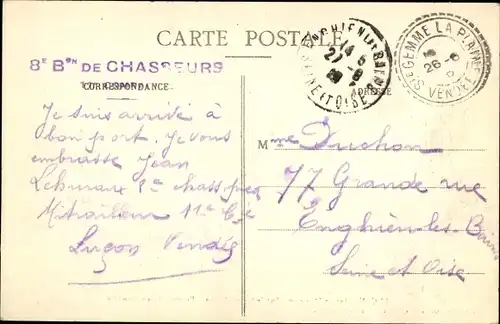 CARTE POSTALE
8E Bon DE CHASSEURS
CORRESPONDANCE
ADRESSE
Je suis arrivé à
bon port, je vous
embrasse Jean
chass
Mitrailleur 11e Cie
Luçon Vendée
Mme Duchon
77 Grande rue
Enghien-les-Bains
Seine et Oise
ENGHIEN LES BAINS
SEINE ET OISE
STE GEMME LA PLAINE
26-6
VENDÉE